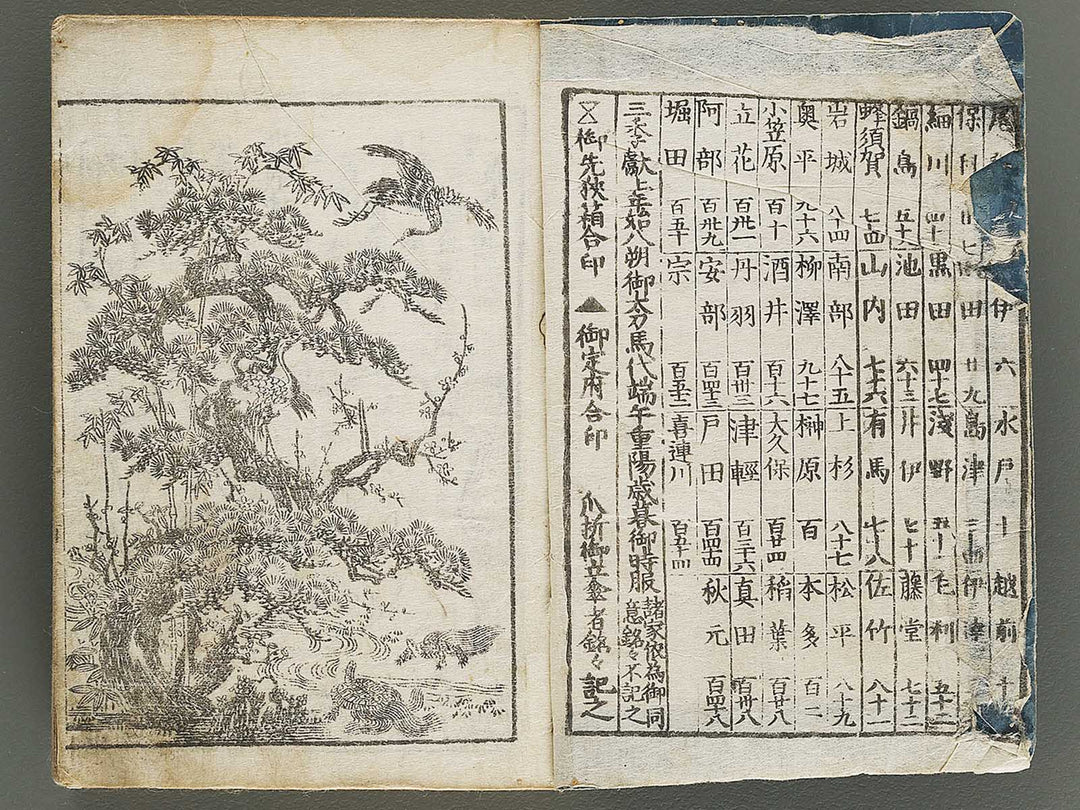 尾 伊 六 水戸 十 越前
保科 廿七 田 廿九 島津 伊達
細川 四十 黒田 四十七 淺野 五十一 毛利 五十二
鍋島 池田 六十三 井伊 七十 藤堂 七十二
蜂須賀 七十四 山内 七十六 有馬 七十八 佐竹 八十一
岩城 八十四 南部 八十五 上杉 八十七 松平 八十九
奥平 九十六 柳澤 九十七 榊原 百 本多 百二
小笠原 百十 酒井 百十六 大久保 百廿四 稻葉 百廿八
立花 百卅一 丹羽 百卅三 津輕 百三十六 真田 百卅八
阿部 百卅九 安部 百四十三 戸田 百四十四 秋元 百四十八
堀田 百五十 宗 百五十三 喜連川 百五十四
三季献上並如八朔御太刀馬代端午重陽歳暮御時服 諸家依為御同
意銘々不記之
御先狹箱合印 ▲御定府合印 爪折御立傘者銘々記之